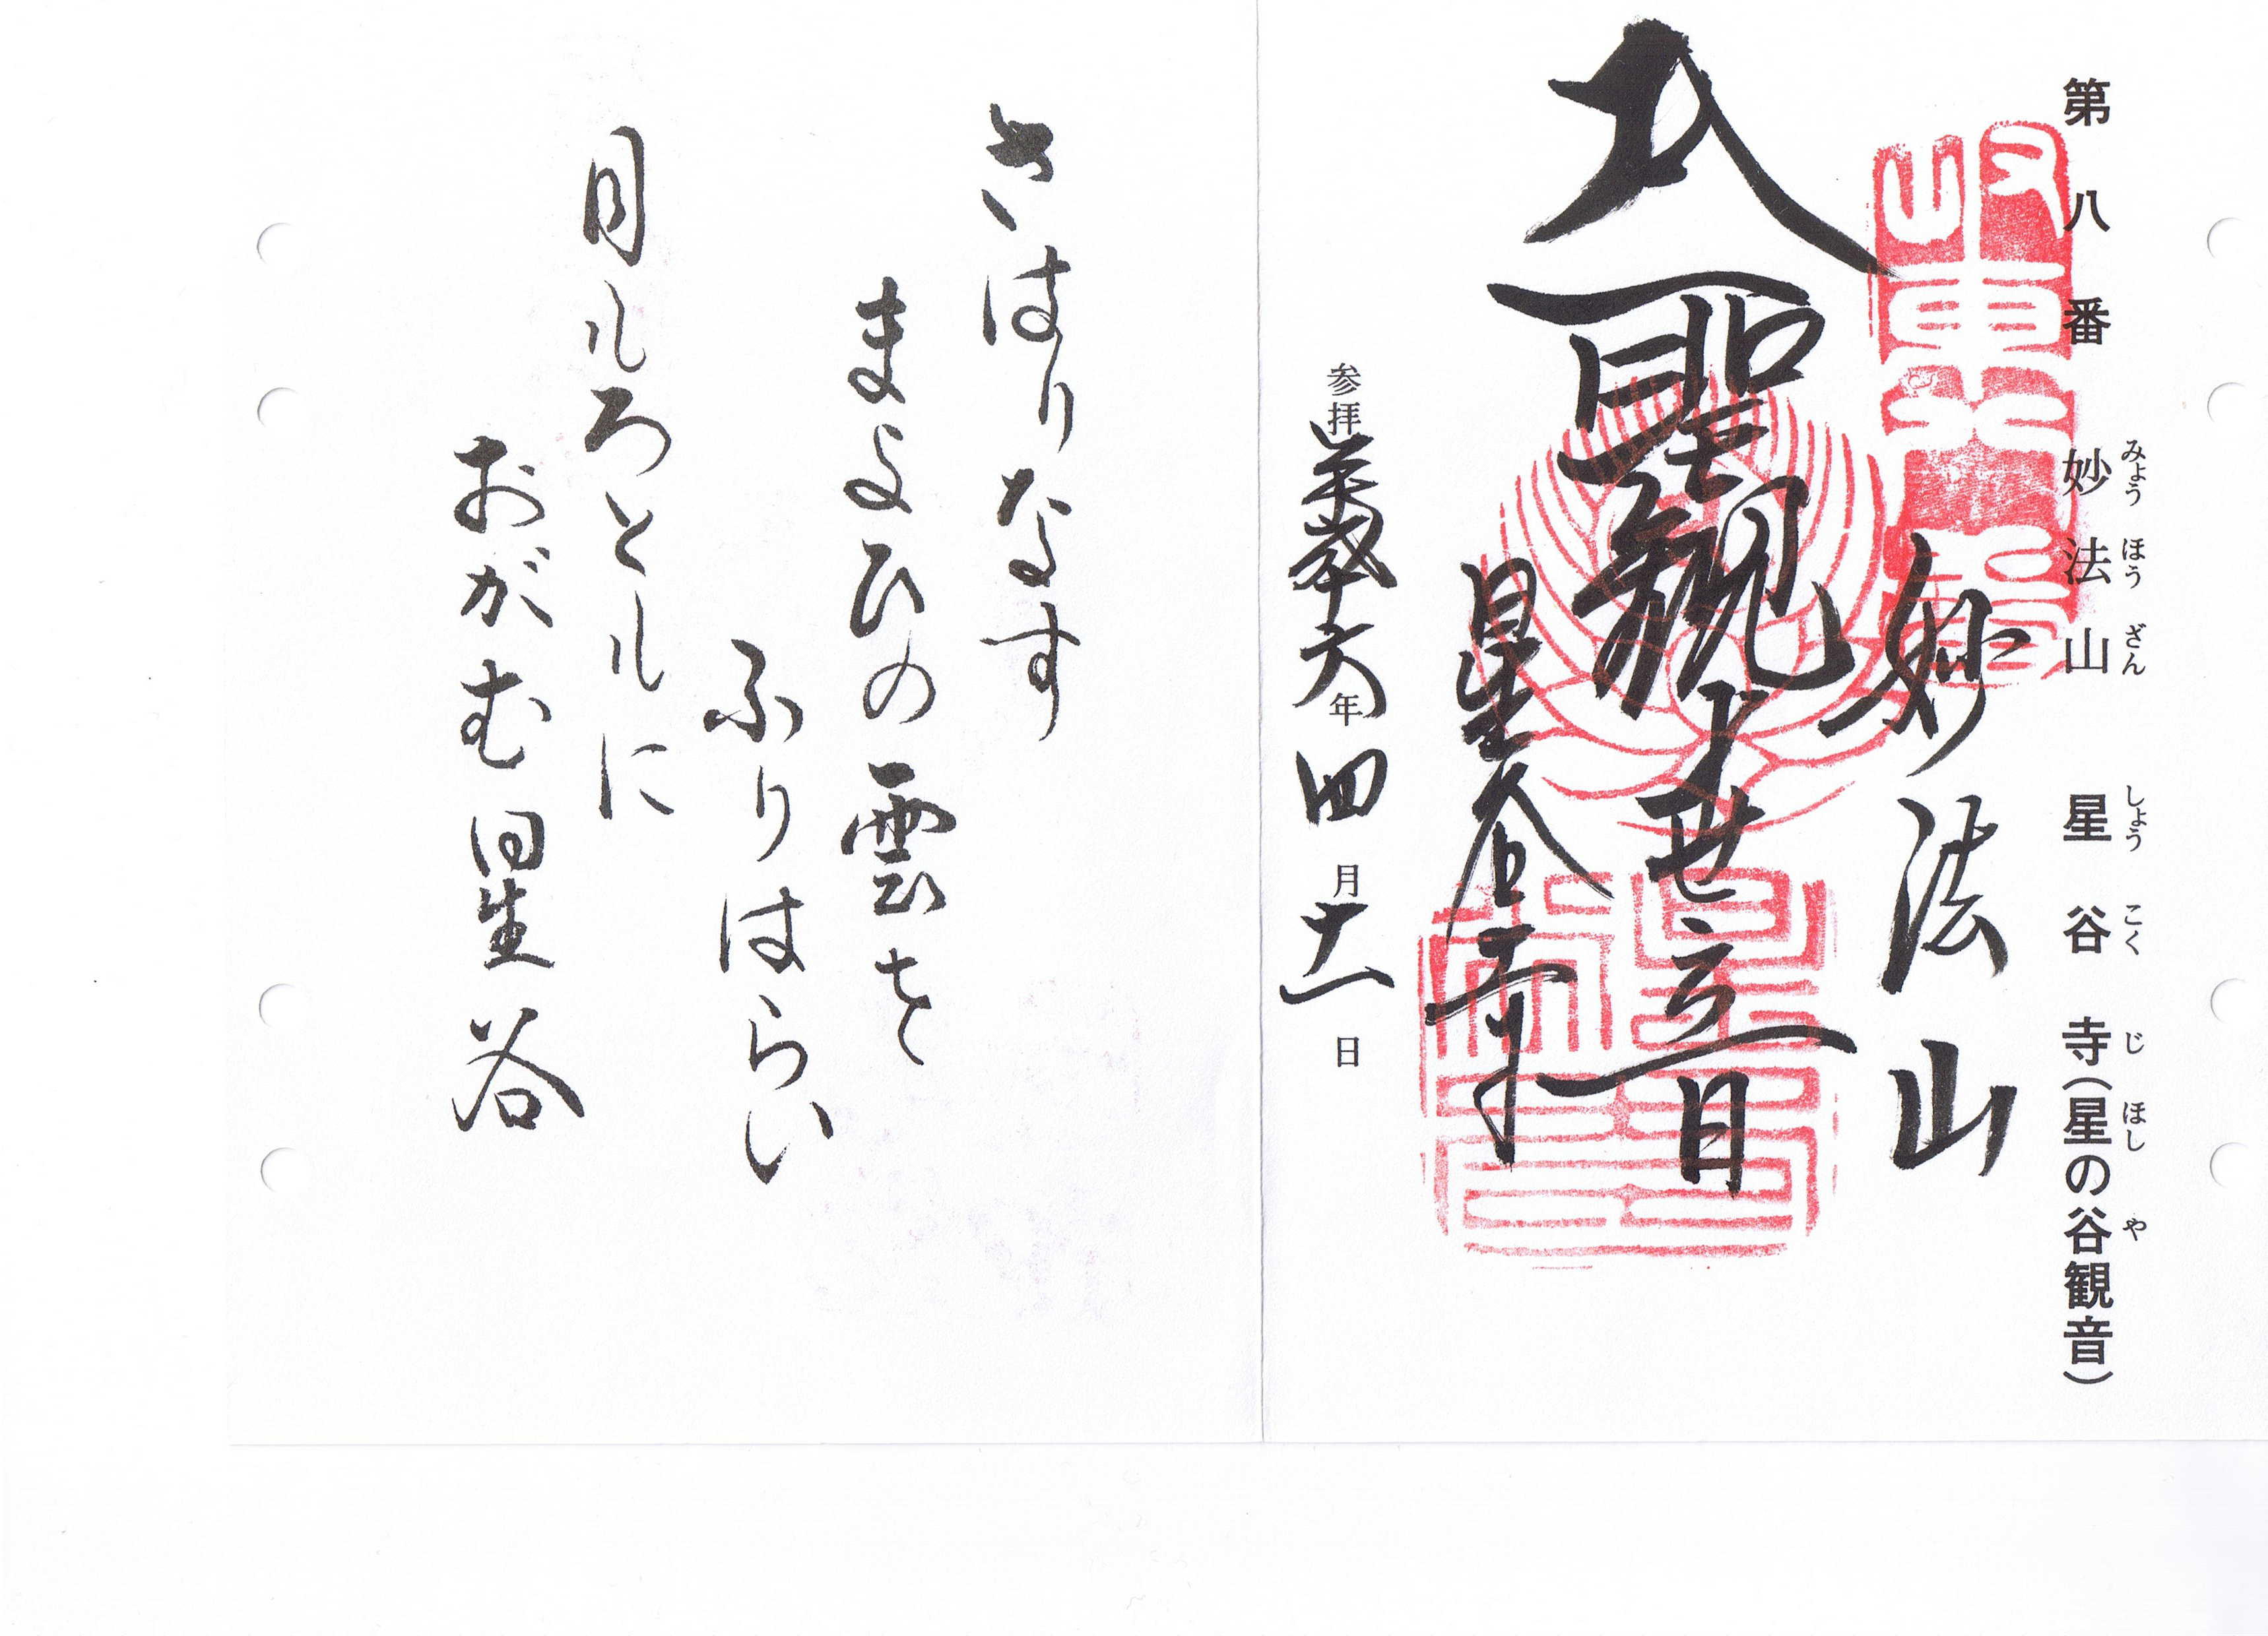 第八番 妙法山 星谷寺(星の谷観音)
みょう ほう ざん しょう こく じ ほし や
妙法山
大聖観世音
星谷寺
参拝 平成十六年四月十一日
さはりなす
まよひの雲を
ふりはらい
月もろともに
おがむ星谷